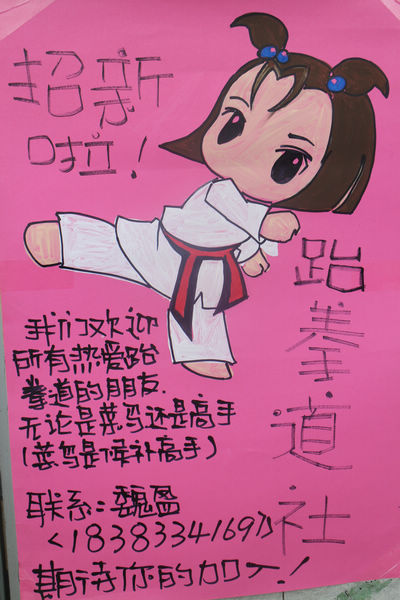 招新
啦!
跆拳道社
我们欢迎
所有热爱跆
拳道的朋友.
无论是菜鸟还是高手
(菜鸟是候补高手)
联系:魏盈
<18383341697>
期待你的加入!